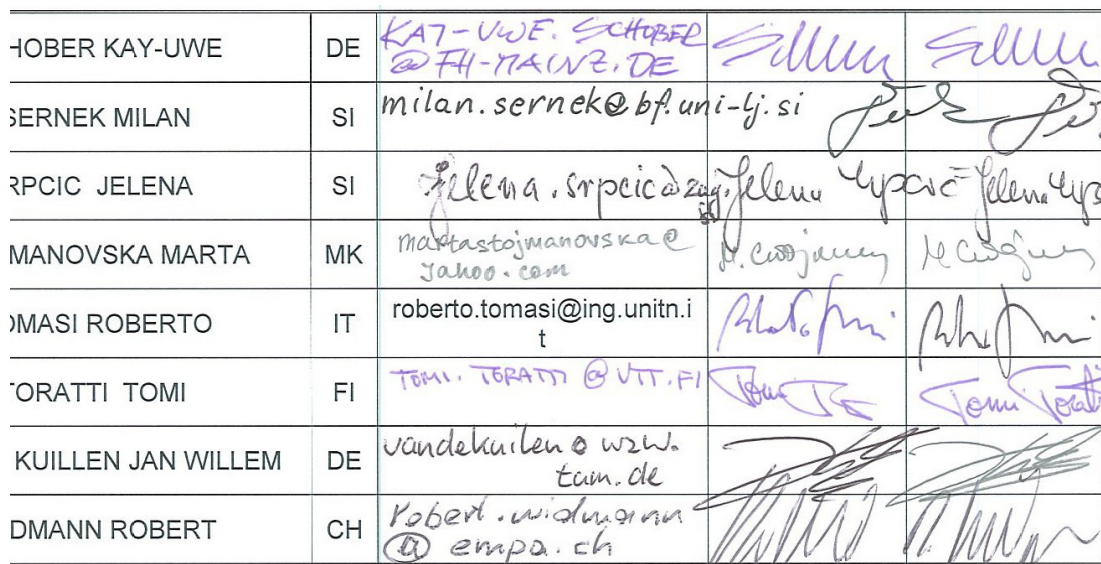 HOBER KAY-UWE DE KAY-UWE.SCHOBER
@FH-MAINZ.DE
SERNEK MILAN SI milan.sernek@bf.uni-lj.si
RPCIC JELENA SI jelena.srpcic@zag.si Jelena Jelena
MANOVSKA MARTA MK martastojmanovska@
yahoo.com
OMASI ROBERTO IT roberto.tomasi@ing.unitn.i
t
TORATTI TOMI FI TOMI.TORATTI@VTT.FI Tomi Tomi Toratti
KUILLEN JAN WILLEM DE vandekuilen@wzw.
tum.de
DMANN ROBERT CH robert.widmann
@ empa.ch